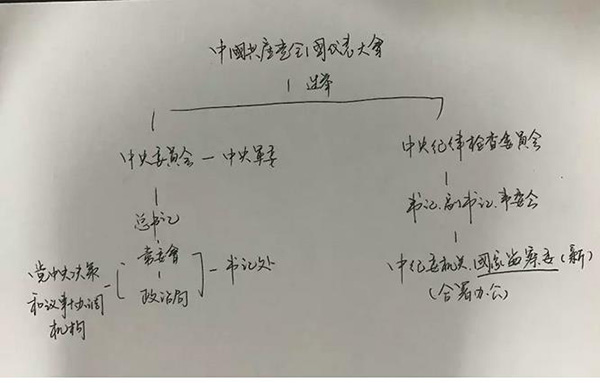 中國共产党全国代表大會
选举
中央委员会 — 中央军委
中央纪律检查委员会
总书记
书记、副书记、常委会
常委會
政治局
书记处
党中央决策
和议事协调
机构
中纪委机关、国家监察委(新)
(合署办公)